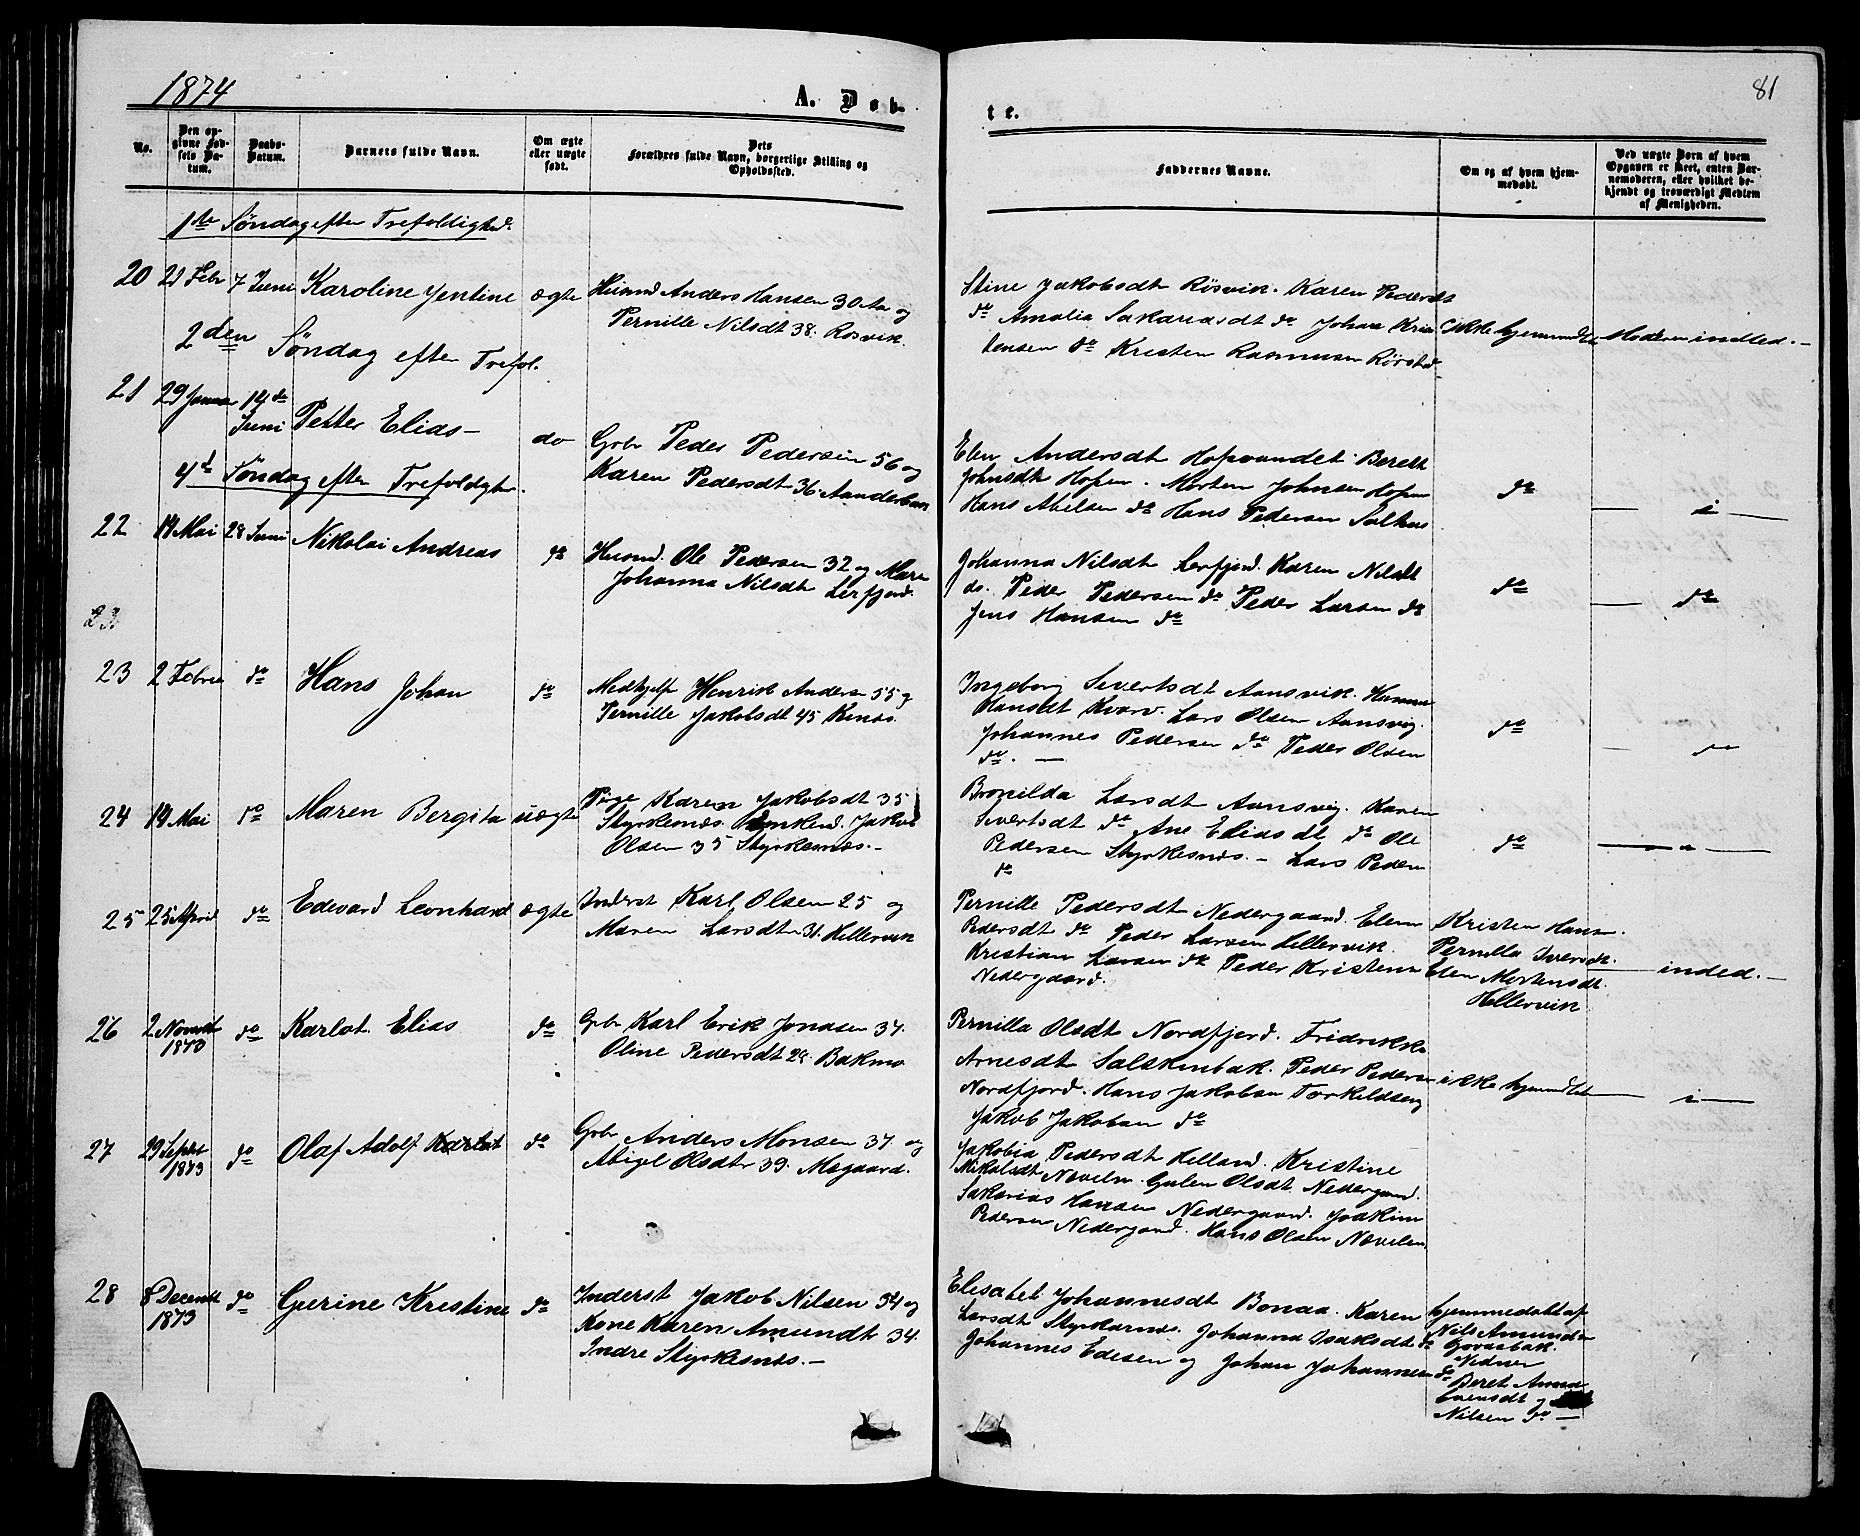 1874
A. Døb-
te.
81
No.
Den opgivne Fødsels Datum.
Daabs-Datum.
Barnets fulde Navn.
Om ægte eller uægte født.
Dets Forældres fulde Navn, borgerlige Stilling og Opholdssted.
Faddernes Navne.
Om og af hvem hjemmedøbt.
Ved uægte Børn af hvem Opgaven er skeet, enten Barnemoderen, eller hvilket bekjendt og troværdigt Medlem af Menigheden.
1ste Søndag efter Trefoldighed.
20 21 Febr 7 Juni Karoline Jentine ægte Husmd Anders Hansen 30 Aar og
Pernille Nilsdt 38. Rosvik
Stine Jakobsdt Rösvik. Karen Pedersdt
do Amalia Sakariasdt do Johan Kris
tensen do Kristen Rasmusen Rørstad
ikke hjemmedøbt Moderen indled.-
2den Søndag efter Trefol.
21 29 Januar 14de Juni Petter Elias- do Grbr Peder Pedersen 56 og
Karen Pedersdt 36
Elen Andersdt Hopvandet Berett
Johnsdt Hopen. Morten Johnsen Hopen
Hans Abelsen do Hans Pedersen Salhus
do — i —
4d Søndag efter Trefoldigh.
22 14 Mai 28 Juni Nikolai Andreas do Husmd. Ole Pedersen 32 og Maren
Johanna Nilsdt Lerfjord.
Johanna Nilsdt Lerfjord. Karen Nilsdt
do. Peder Pedersen do Peder Larsen do
Jens Hansen do
do — do
23.
23 2 Febru do Hans Johan do Medhjelp Henrik Anders 55 og
Pernille Jakobsdt 45 Kines.
Ingeborg Sivertsdt Aansvik. Hanna
Hansdt Kvarv. Lars Olsen Aansvig.
Johannes Pedersen do Peder Olsen
do. —
do — do
24 14 Mai do Maren Bergita uægte Pige Karen Jakobsdt 35
Styrkesnes. Enkemd. Jakob
Olsen 35 Styrkesnes.-
Bronilda Larsdt Aansvig. Karen
Sivertsdt do Ane Eliasdt do Ole
Pedersen Styrkesnes.- Lars Peders
do
do — „ —
25 25 April do Edevard Leonhard ægte Inderst Karl Olsen 25 og
Maren Larsdtr 31. Hellervik
Pernille Pedersdt Nedergaard. Elen
Pedersdt do Peder Larsen Hellervik.
Kristian Larsen do Peder Kristensen
Nedergaard.
Kristen Hans.
Pernilla Iversdt.
Elen Mortensdt.
Hellervik
— indled.-
26 2 Novembr 1873 do Karlot Elias do Grbr Karl Erik Jonasen 37.
Oline Pedersdt 29 Bakmo
Pernilla Olsdt Nordfjord. Fridrikke
Arnesdt Salskinbak. Peder Pedersen
Nordfjord. Hans Jakobsen Torkildseng
Jakob Jakobsen do
ikke hjemmedøbt — i —
27 29 Septbr 1873 do Olaf Adolf Karlot do Grbr Anders Monsen 37 og
Abigel Olsdtr 39. Mogaard.
Jakobia Pedersdt Helland. Kristine
Nikolsdt Nævelm. Gulen Olsdt Nedergaard.
Sakarias Hansen Nedergaard. Joakim
Pedersen Nedergaard. Hans Olsen Nævelen
28 8 Decembr 1873 do Gjerine Kristine do Inderst Jakob Nilsen 34 og
Kone Karen Amundt 34.
Indre Styrkesnes.-
Elisabet Johannesdt Bonaa. Karen
Larsdt Styrkesnes. Johanna Isaksdt do
Johannes Edisen og Johan Johannesen do
hjemmedøbt af
Nils Amunds
Vidner
Beret Amunds
Evensdt og
Nilsen do —